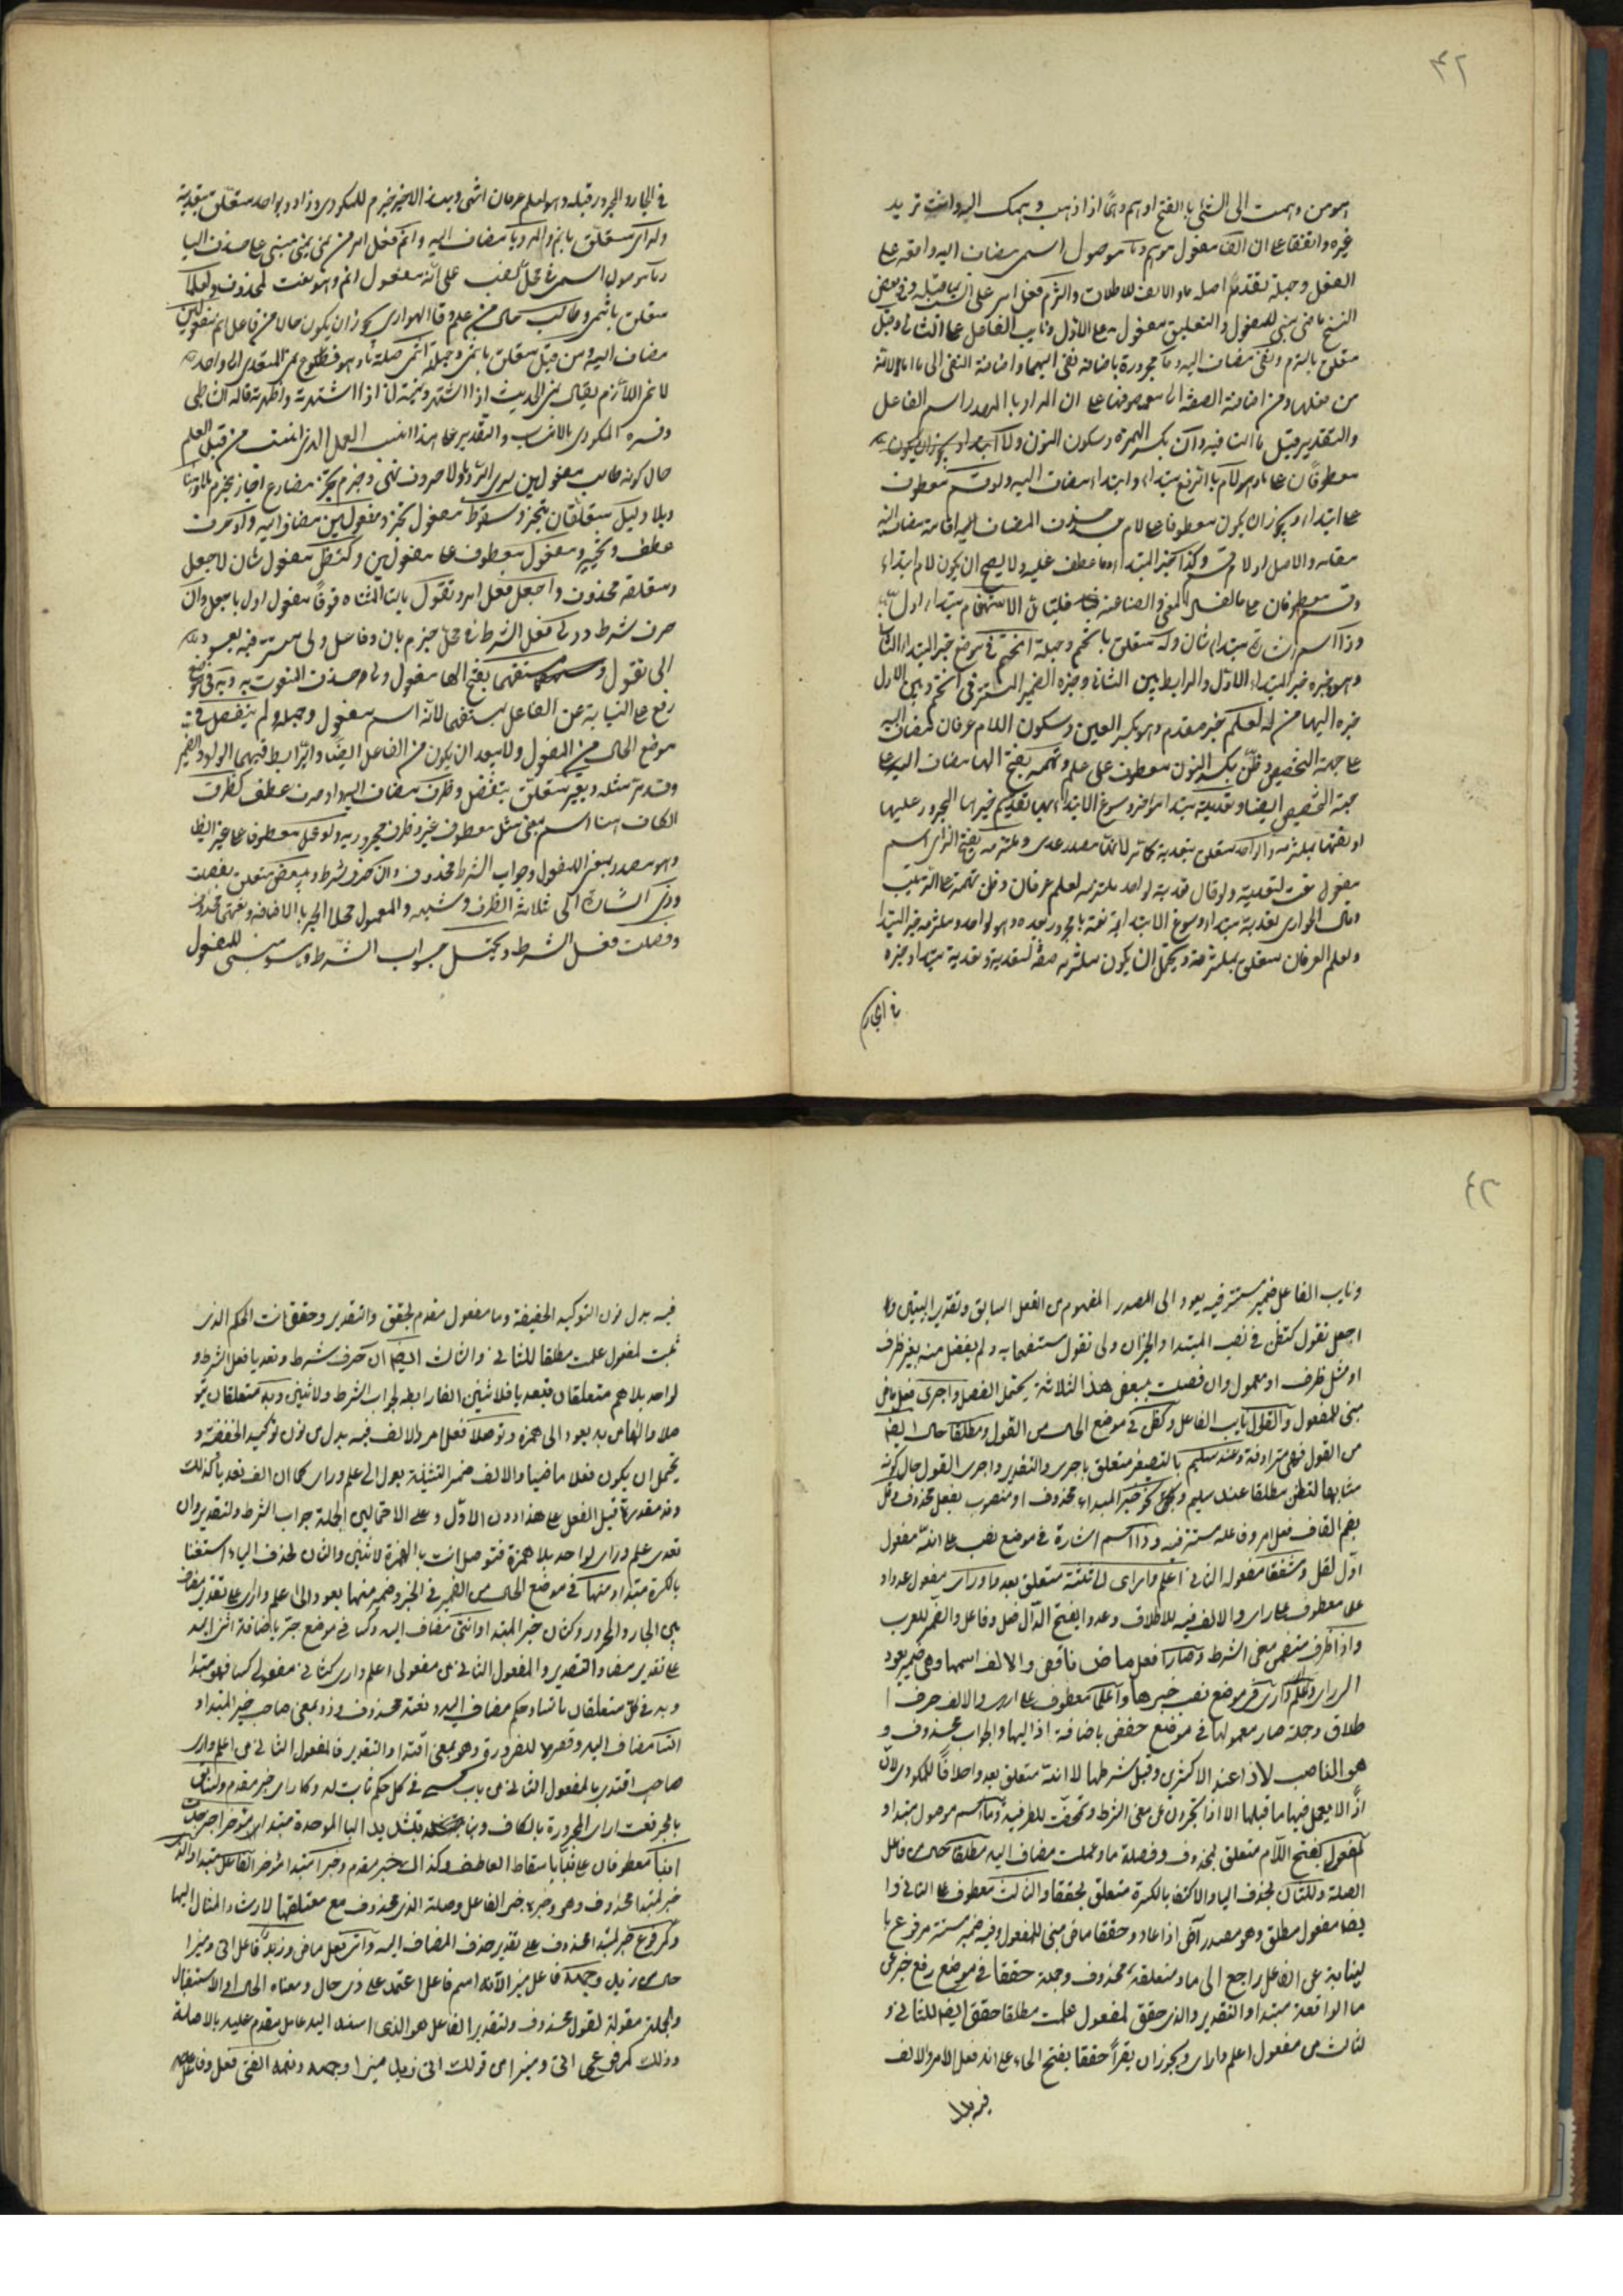 ٤٢
هو من وهمت الى الشئ بالفتح اوهم وهما اذا ذهب وهمك اليه وانت تريد
غيره واتفقا على ان الفا مفعول موهم وما موصول اسمى مضاف اليه واقعه على
الفعل وجملة تقدما صلة ما والالف للاطلاق والتزم فعل امر على ان ما قبله وفى بعض
النسخ ماضى مبنى للمفعول والتعليق مفعول به على الاول ونايب الفاعل على الثانى وقبل
متعلق بالتزم ونفى مضاف اليه وما مجرورة باضافة نفى اليهما واضافة النفى الى ما
من اضافة الصفة الى موصوفها على ان المراد بالمصدر اسم الفاعل
والتقدير قبل ما النافيه وان بكسر الهمزة وسكون النون ولا
معطوفان على ما ولام بالرفع مبتداء وابتداء مضاف اليه وقسم معطوف
على ابتداء ويجوز ان يكون معطوفا على لام بحذف المضاف اليه اقامة مضاف اليه
مقامه والاصل او لام قسم وكذا خبر المبتداء وما عطف عليه ولا يصح ان يكون لام ابتداء
وقسم معطوفان على ما لفساد المعنى والصناعة فليتامل الاستفهام مبتداء اول
وذا اسم اشارة مبتداء ثان وله متعلق بانحتم وجملة انحتم فى موضع خبر المبتداء الثانى
وهو خبره خبر المبتداء الاول والرابط بين الثانى وخبره الضمير المستتر فى انحتم وبين الاول
خبره الهاء من له لعلم خبر مقدم وهو بكسر العين وسكون اللام عرفان مضاف اليه
على جهة التخصيص وظن بكسر النون معطوف على علم وتهمه بفتح الهاء مضاف اليه على
جهة التخصيص ايضا وتعدية مبتداء مؤخر وسوغ الابتداء بها تقديم خبرها المجرور عليها
او نعتها بملتزمه ولواحد متعلق بتعدية لانها مصدر عدى وملتزمه بفتح الزاى اسم
مفعول نعت لتعدية ولو قال تعدية لواحد ملتزمه لعلم عرفان وظن تهمة على الترتيب
وقال الهوارى تعدية مبتداء وسوغ الابتداء به نعته بالمجرور بعده وهو لواحد وملتزمه خبر المبتداء
ولعلم العرفان متعلق بملتزمة ويحتمل ان يكون ملتزمه صفة لتعدية وتعدية مبتداء وخبره
فى الجار
فى الجار والمجرور قبله وهو لعلم عرفان انتهى وبهذا الاخير جزم المكودى وزاد ولواحد متعلق بتعدية
ولراى متعلق بانم والرويا مضاف اليه وانم فعل امر من نمى ينمى مبنى على حذف اليا
وما موصول اسمى فى محل نصب على انه مفعول انم وهو نعت لمحذوف ولعلما
متعلق بانتمى وطالب حال من علم وقال الهوارى يجوز ان يكون حالا من فاعل انم مفعولين
مضاف اليه ومن قبل متعلق بانتمى وجملة انتمى صلة ما وهو مطاوع نمى المتعدى الى واحد
لا نمى اللازم يقال نمى الحديث اذا اشتهر ونميته انا اذا اشتهرته واظهرته قاله الشاطبى
وفسره المكودى بالانتساب والتقدير على هذا انسب العمل الذى انتسب من قبل العلم
حال كونه طالب مفعولين لراى الرؤيا ولا حرف نهى وجزم تجز مضارع اجاز مجزوم بلا وهنا
وبلا دليل متعلقان بتجز وسقوط مفعول تجز ومفعولين مضاف اليه واو حرف
عطف ومفعول معطوف على مفعولين وكتظن مفعول ثان لاجعل
ومتعلقه محذوف واجعل فعل امر وتقول بالتا المثناه فوقا مفعول اول باجعل وان
حرف شرط وولى فعل الشرط فى محل جزم بان وفاعل ولى مستتر فيه يعود
الى تقول ومستفهما بفتح الها مفعول ولى حذف المنعوت به وبه فى موضع
رفع على النيابة عن الفاعل بمستفهما لانه اسم مفعول وجملة ولم ينفصل فى
موضع الحال من المفعول ولا يبعد ان يكون من الفاعل ايضا والرابط فيهما الواو والضمير
وقد مر مثله وبغير متعلق بينفصل وظرف مضاف اليه واو حرف عطف كظرف
الكاف هنا اسم بمعنى مثل معطوف على غير وظرف مجرور به او عمل معطوف على غير ايضا
وهو مصدر بمعنى المفعول وجواب الشرط محذوف وان حرف شرط وببعض متعلق بفصلت
وذى اشارة الى ثلاثة الظرف وشبهه والمعمول محلها الجر بالاضافة ونعتها محذوف
وفصلت فعل الشرط ويحتمل جواب الشرط وهو مبنى للمفعول
٤٣
ونايب الفاعل ضمير مستتر فيه يعود الى المصدر المفهوم من الفعل السابق وتقدير البيتين وا
اجعل تقول كتظن فى نصب المبتدا والخبر ان ولى تقول مستفهما به ولم يفصل منه بغير ظرف
او مثل ظرف او معمول وان فصلت ببعض هذا الثلاثة يحتمل الفصل واجرى فعل ماض
مبنى للمفعول والقول نايب الفاعل وكظن فى موضع الحال من القول ومطلقا حال ايضا
من القول فهى مترادفة وعند سليم بالتصغير متعلق باجرى والتقدير واجرى القول حال كونه
مشابها لتظن مطلقا عند سليم ونحو خبر المبتداء محذوف او منصوب بفعل محذوف وقل
بضم القاف فعل امر وفاعله مستتر فيه وذا اسم اشارة فى موضع نصب على انه مفعول
اول لقل ومشفقا مفعوله الثانى اعلم وارى الى ثلثة متعلق بعدوا وراى مفعول عدوا و
علم معطوف على راى والالف فيه للاطلاق وعدوا بفتح الدال فعل وفاعل والضمير للعرب
واذا ظرف متضمن معنى الشرط وصارا فعل ماض ناقص والالف اسمها وهى ضمير يعود
الى راى وعلم وارى فى موضع نصب خبرها واعلما معطوف على ارى والالف حرف ا
طلاق وجملة صار معمولها فى موضع خفض باضافة اذا اليها والجواب محذوف و
هو الناصب لاذا عند الاكثرين وقيل شرطها لا انه متعلق بعدوا خلافا للمكودى لان
اذا لا يعمل فيها ما قبلها الا اذا تجردت عن معنى الشرط وتمحضت للظرفية وما اسم موصول مبتدا و
لمفعولى بفتح اللام متعلق بمحذوف وفصلة ما وعلمت مضاف اليه مطلقا حال من فاعل
الصلة وللثان بحذف اليا والاكتفا بالكسرة متعلق بحققا والثالث معطوف على الثانى وا
يضا مفعول مطلق وهو مصدر آض اذا عاد وحققا ماض مبنى للمفعول وفيه ضمير مستتر مرفوع با
لنيابة عن الفاعل راجع الى ما ومتعلقه محذوف وجملة حققا فى موضع رفع خبر عن
ما الواقعة مبتدا والتقدير والذى حقق لمفعول علمت مطلقا حقق ايضا للثانى و
لثالث من مفعول اعلم وارى ويجوز ان يقرأ حققا بفتح الحاء على انه فعل الامر والالف
فيه بدل
فيه بدل نون التوكيد الخفيفة وما مفعول مقدم لحقق والتقدير وحقق انت الحكم الذى
ثبت لمفعول علمت مطلقا للثانى والثالث ايضا ان حرف شرط وتعديا فعل الشرط و
لواحد بلا همز متعلقان بتعديا فلاثنين الفا رابطه لجواب الشرط ولاثنين وبه متعلقان بتو
صلا والها من به يعود الى همزه وتوصلا فعل امر والالف فيه بدل من نون توكيد الخفيفة و
يحتمل ان يكون فعلا ماضيا والالف ضمير التثنية يعود الى علم وراى كما ان الف تعديا كذلك
وقد مقدرة قبل الفعل على هذا دون الاول وعلى الاحتمالين الجملة جواب الشرط والتقدير وان
تعدى علم وراى لواحد بلا همزة فتوصل انت بالهمزة لاثنين والثان بحذف الياء استغنا
بالكسرة مبتدا ومنهما فى موضع الحال من الضمير فى الخبر وضمير منهما يعود الى اعلم وارى على تقدير مضاف
بين الجار والمجرور وكثان خبر المبتدا واثنى مضاف اليه وكسا فى موضع جر باضافة اثنى اليه
على تقدير مضاف والتقدير والمفعول الثانى من مفعولى اعلم وارى كثانى مفعولى كسا فهو مبتدا
وبه فى كل متعلقان بائتسا وحكم مضاف اليه ونعته محذوف وذو بمعنى صاحب خبر المبتدا و
ائتسا مضاف اليه وقصره للضرورة وهو بمعنى اقتدا والتقدير فالمفعول الثانى من اعلم وارى
صاحب اقتدى بالمفعول الثانى من باب كسى فى كل حكم ثابت له وكارى خبر مقدم
بالجر نعت ارى المجرورة بالكاف ونبا بتشديد البا الموحدة مبتدا مؤخر اخبر حدث
انبا معطوفان على نبا باسقاط العاطف وكذاك خبر مقدم وخبرا مبتدا مؤخر الفاعل مبتدا والذى
خبر لمبتدا محذوف وهو وخبره خبر الفاعل وصلة الذى محذوف مع متعلقها لارشاد المثال اليها
وكمرفوعى خبر لمبتدا محذوف على تقدير حذف المضاف اليه وآتى فعل ماض وزيد فاعل اتى ومنيرا
حال من زيد ووجهه فاعل منيرا لانه اسم فاعل اعتمد على ذى حال ومعناه الحال او الاستقبال
والجملة مقولة لقول محذوف والتقدير الفاعل هو الذى اسند اليه عامل مقدم عليه بالاصالة
وذلك كمرفوعى اتى ومنيرا من قولك اتى زيد منيرا وجهه ونعم الفتى فعل وفاعل